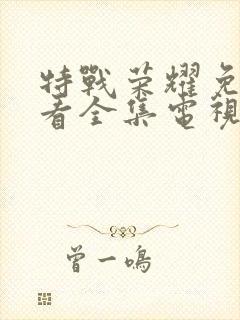 特戰荣耀免
看全集電視
曾一鳴